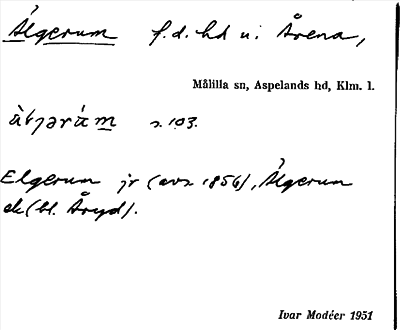 Älgerum f.d. hd u. Årena,
Målilla sn, Aspelands hd, Klm. l.
s. 103.
Elgerum jr (avs. 1856), Älgerum
ek (bl. Åryd).
Ivar Modéer 1951